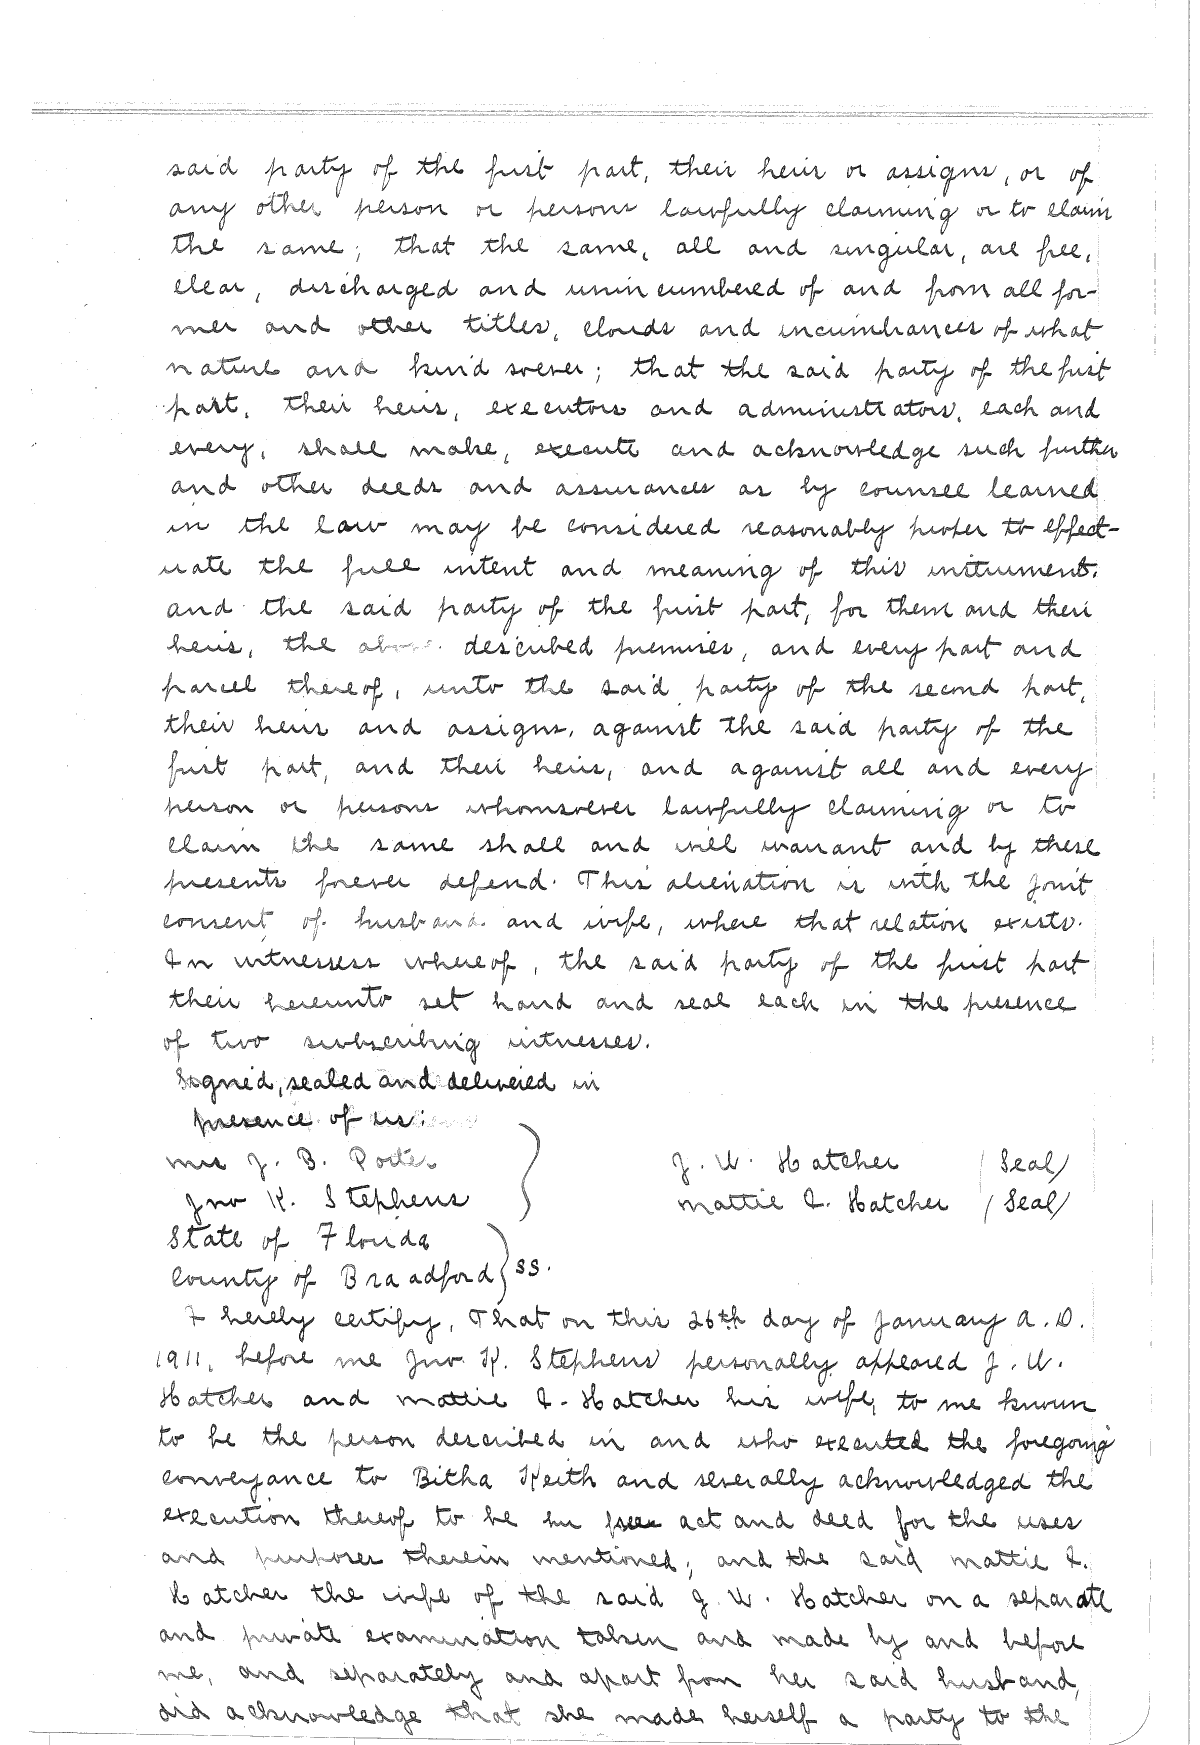 said party of the first part, their heirs or assigns, or of
any other person or persons lawfully claiming or to claim
the same; that the same, all and singular, are free,
clear, discharged and unincumbered of and from all for-
mer and other titles, clouds and incumbrances of what
nature and kind soever; that the said party of the first
part, their heirs, executors and administrators, each and
every, shall make, execute and acknowledge such further
and other deeds and assurances as by counsel learned
in the law may be considered reasonably proper to effect-
uate the full intent and meaning of this instrument.
and the said party of the first part, for them and their
heirs, the above described premises, and every part and
parcel thereof, unto the said party of the second part,
their heirs and assigns, against the said party of the
first part, and their heirs, and against all and every
person or persons whomsoever lawfully claiming or to
claim the same shall and will warrant and by these
presents forever defend. This alienation is with the joint
consent of husband and wife, where that relation exists.
In witnesses whereof, the said party of the first part
their hereunto set hand and seal each in the presence
of two subscribing witnesses.
Signed, sealed and delivered in
presence of us:
Mrs J. B. Porter
J. W. Hatcher (Seal)
Jno K. Stephens
Mattie I. Hatcher (Seal)
State of Florida
County of Braadford } ss.
I hereby certify, That on this 26th day of January A.D.
1911, before me Jno. K. Stephens personally appeared J. W.
Hatcher and Mattie I. Hatcher his wife, to me known
to be the person described in and who executed the foregoing
conveyance to Bitha Keith and severally acknowledged the
execution thereof to be free act and deed for the uses
and purposes therein mentioned; and the said Mattie I.
Hatcher the wife of the said J. W. Hatcher on a separate
and private examination taken and made by and before
me, and separately and apart from her said husband,
did acknowledge that she made herself a party to the